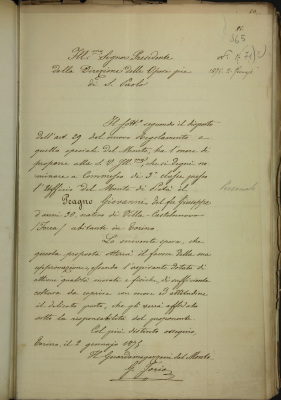 Ill.mo Signor Presidente
della Direzione delle Opere pie
di S. Paolo
365
1875. 2. Gennaio
Il sott.o secondo il disposto
dell'art. 29 del nuovo Regolamento e
quello speciale del Monte, ha l'onore di
proporre alla S.V. Ill.ma, che si degni no
minare a Commesso di 3a classe presso
l'Ufficio del Monte di Pietà il
Personale
Giovanni del fu Giuseppe
d'anni 30, nativo di Villa-Castelnuovo
(Ivrea) abitante in Torino
Lo scrivente spera, che
questa proposta otterrà il favore della sua
approvazione, essendo l'aspirante dotato di
ottime qualità morali e fisiche, di sufficiente
coltura da coprire con onore ed attitudine
il delicato posto, che gli verrà affidato
sotto la responsabilità del proponente.
Col più distinto ossequio
Torino il 2 gennajo 1875
Il Guardamagazzeni del Monte